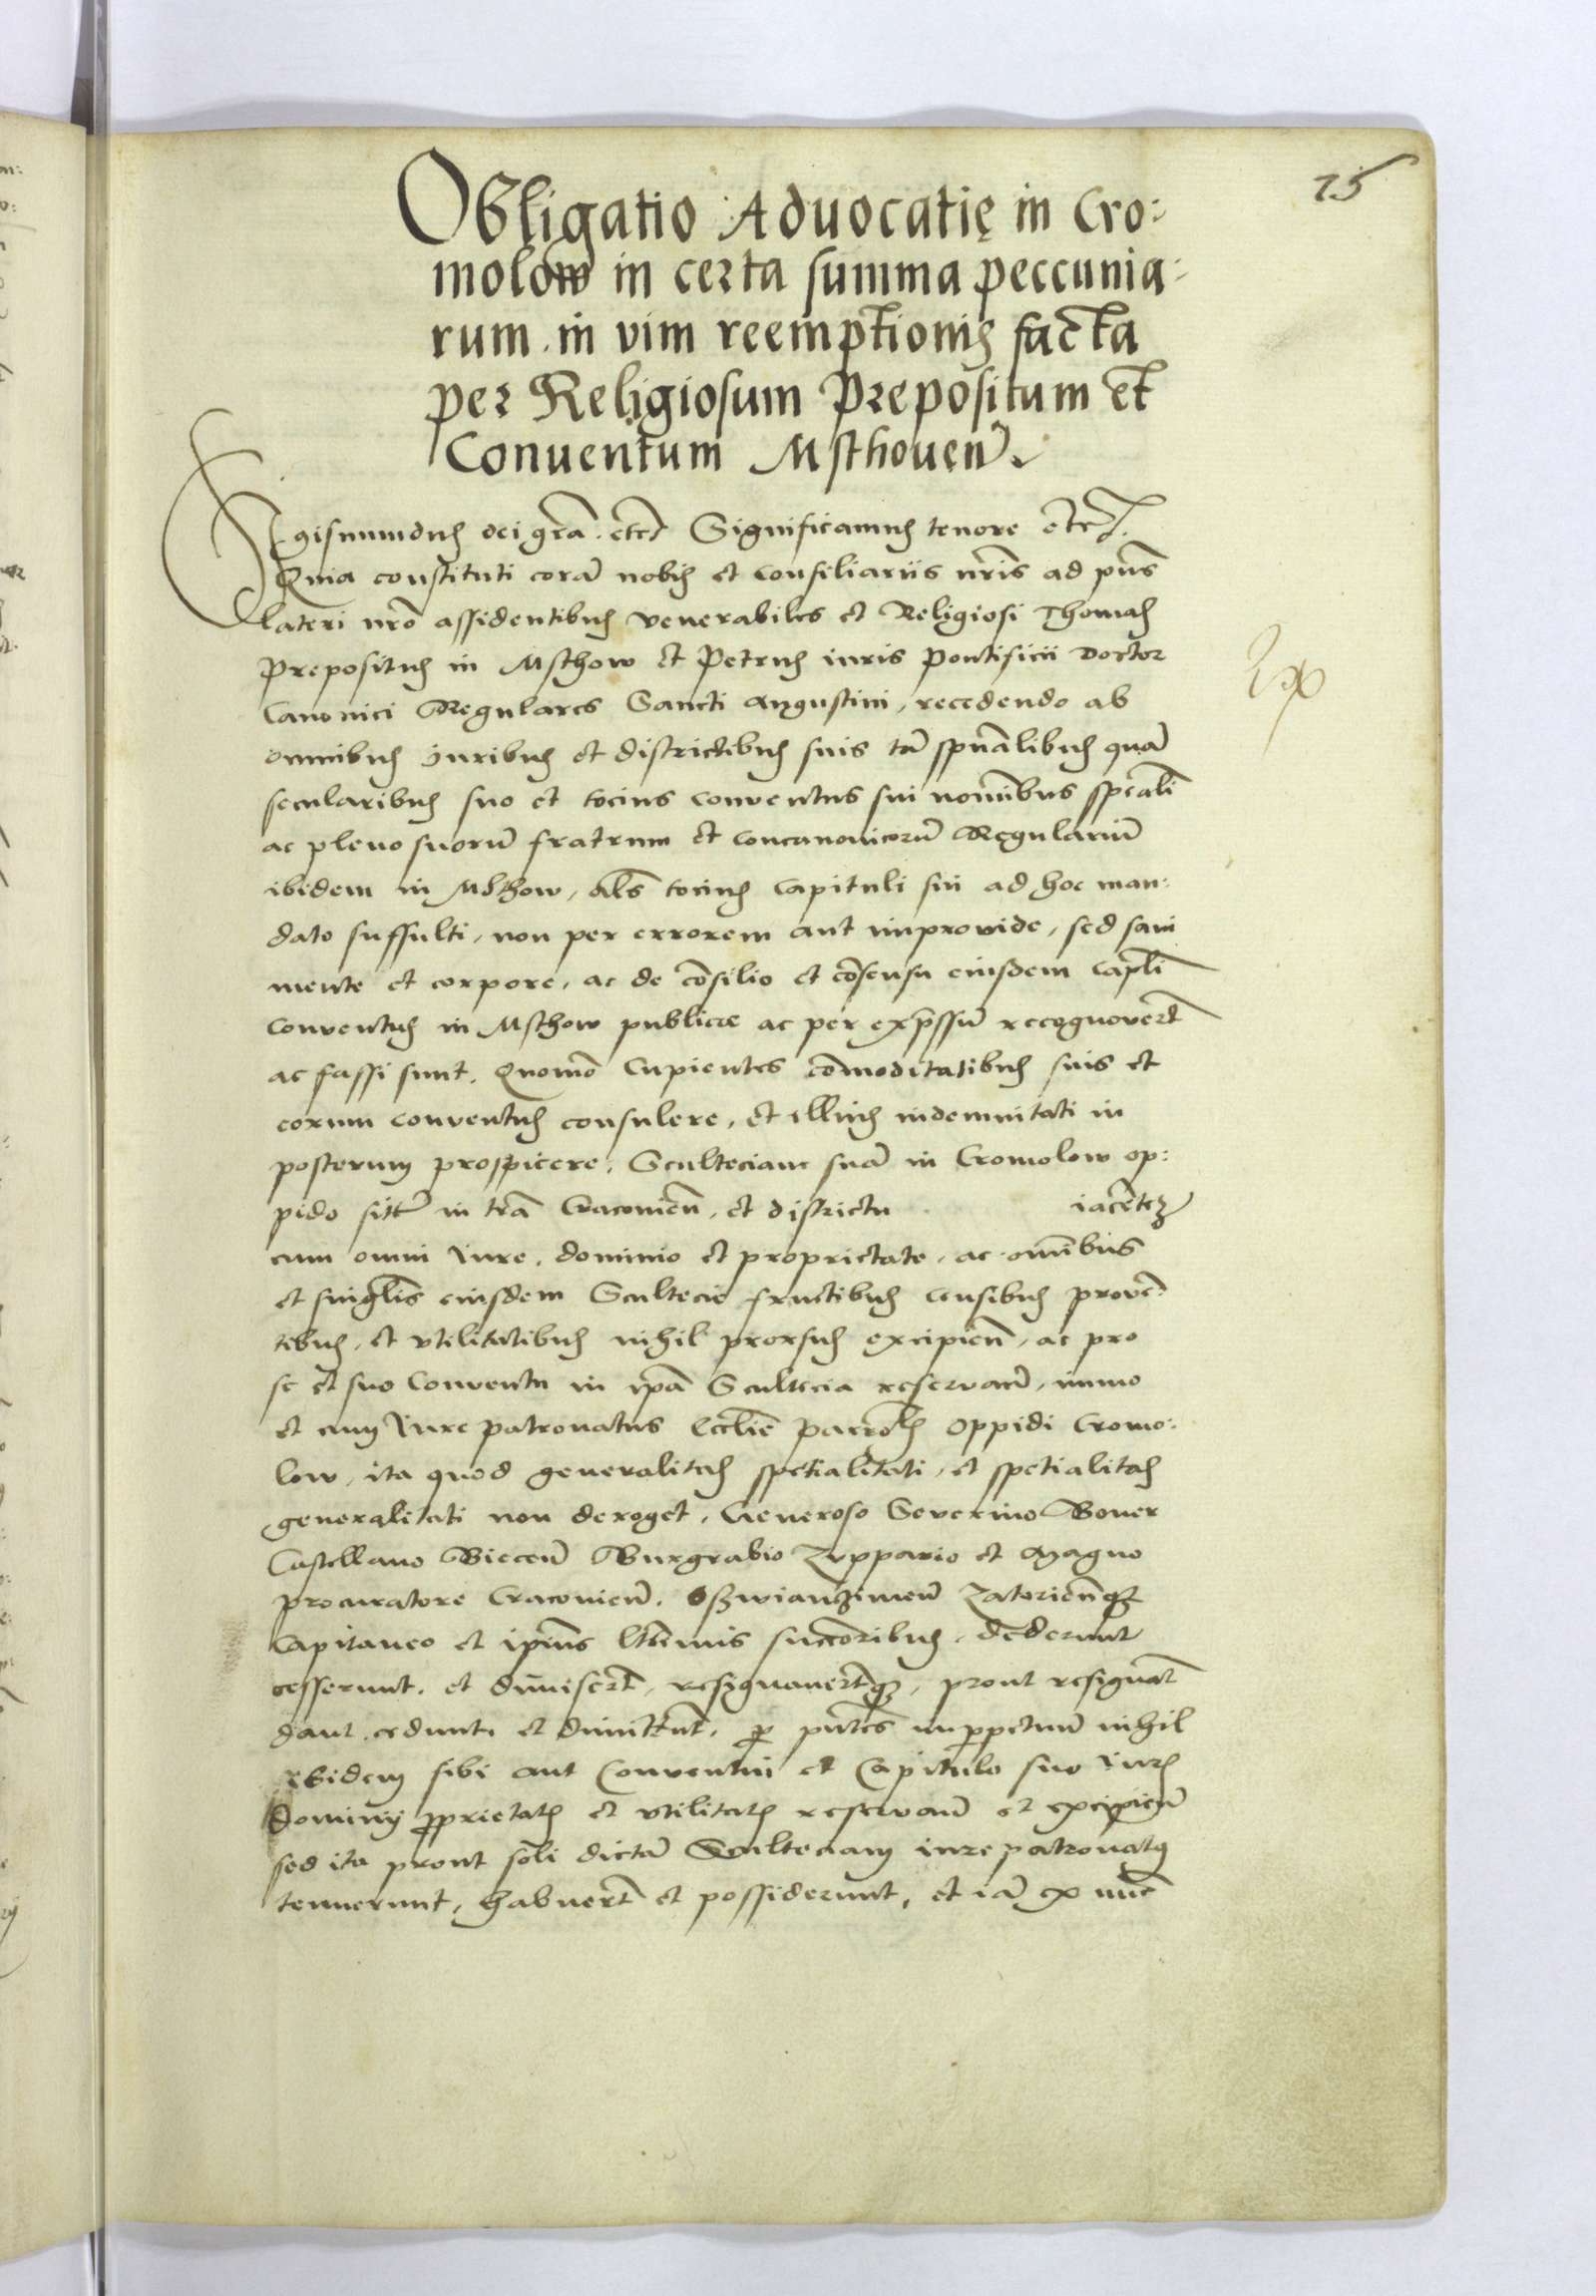 75
Obligatio Aduocatię in Cro:
molow in certa summa peccunia:
rum in vim reemptionis facta
per Religiosum Prepositum et
Conuentum Msthouen̄.
Sigismundus dei gr̄a. etc̄. Significamus tenore etc̄.
Quia constituti corā nobis et consiliariis nr̄is ad pn̄s
lateri nr̄o assidentibus venerabiles et Religiosi Thomas
Prepositus in Msthow et Petrus iuris Pontificii Doctor
Canonici Regulares Sancti Augustini, recedendo ab
omnibus Juribus et districtibus suis tā spūalibus quā
secularibus suo et tocius conventus sui noīnibus spe̅ali
ac pleno suorū fratrum et concanonicorū Regulariū
ibidem in Msthow, al̄s tocius capituli sui ad hoc man:
dato suffulti, non per errorem aut improvide, sed sani
mente et corpore, ac de cōsilio et cōsensu eiusdem cap̄li
conventus in Msthow publice ac per exp̄ssum recognovert̄
ac fassi sunt. Quomō Cupientes cōmoditatibus suis et
eorum conventus consulere, et illius indemnitati in
posterum prospicere, Sculteciam suā in Cromolow op:
pido sitā in trā Cracovien̄, et districtu iacētē
cum omni Jure, dominio et proprietate, ac omībus
et singlīs eiusdem Scultecie fructibus censibus provē
tibus, et vtilitatibus nihil prorsus excipien̄, ac pro
se et suo Conventu in ip̄a Scultecia reservan̄, immo
et cum Jure patronatus Eccl̄ie parro̅ls oppidi Cromo:
low, ita quod generalitas spetialitati, et spetialitas
generalitati non deroget, Generoso Severino Boner
Castellano Biecen̄ Burgrabio Zuppario et Magno
procuratore Cracovien̄. Oszwianzimen̄ Zatorien̄q
Capitaneo et ip̄ius ltīmis succ̄oribus, dederunt
cesserunt, et dimisert̄, resignavert̄q, prout resignāt
dant cedunt et dimittūt, p̱ pn̄tes in ppetuū nihil
ibidem sibi aut Conventui et Capitulo suo Juris
Dominij pprietatis et vtilitatis reservan̄ et excipien̄
sed ita prout soli dictā Sculteciam iure patronatus
tenuerunt, habuert̄ et possiderunt, et iā ex nūc